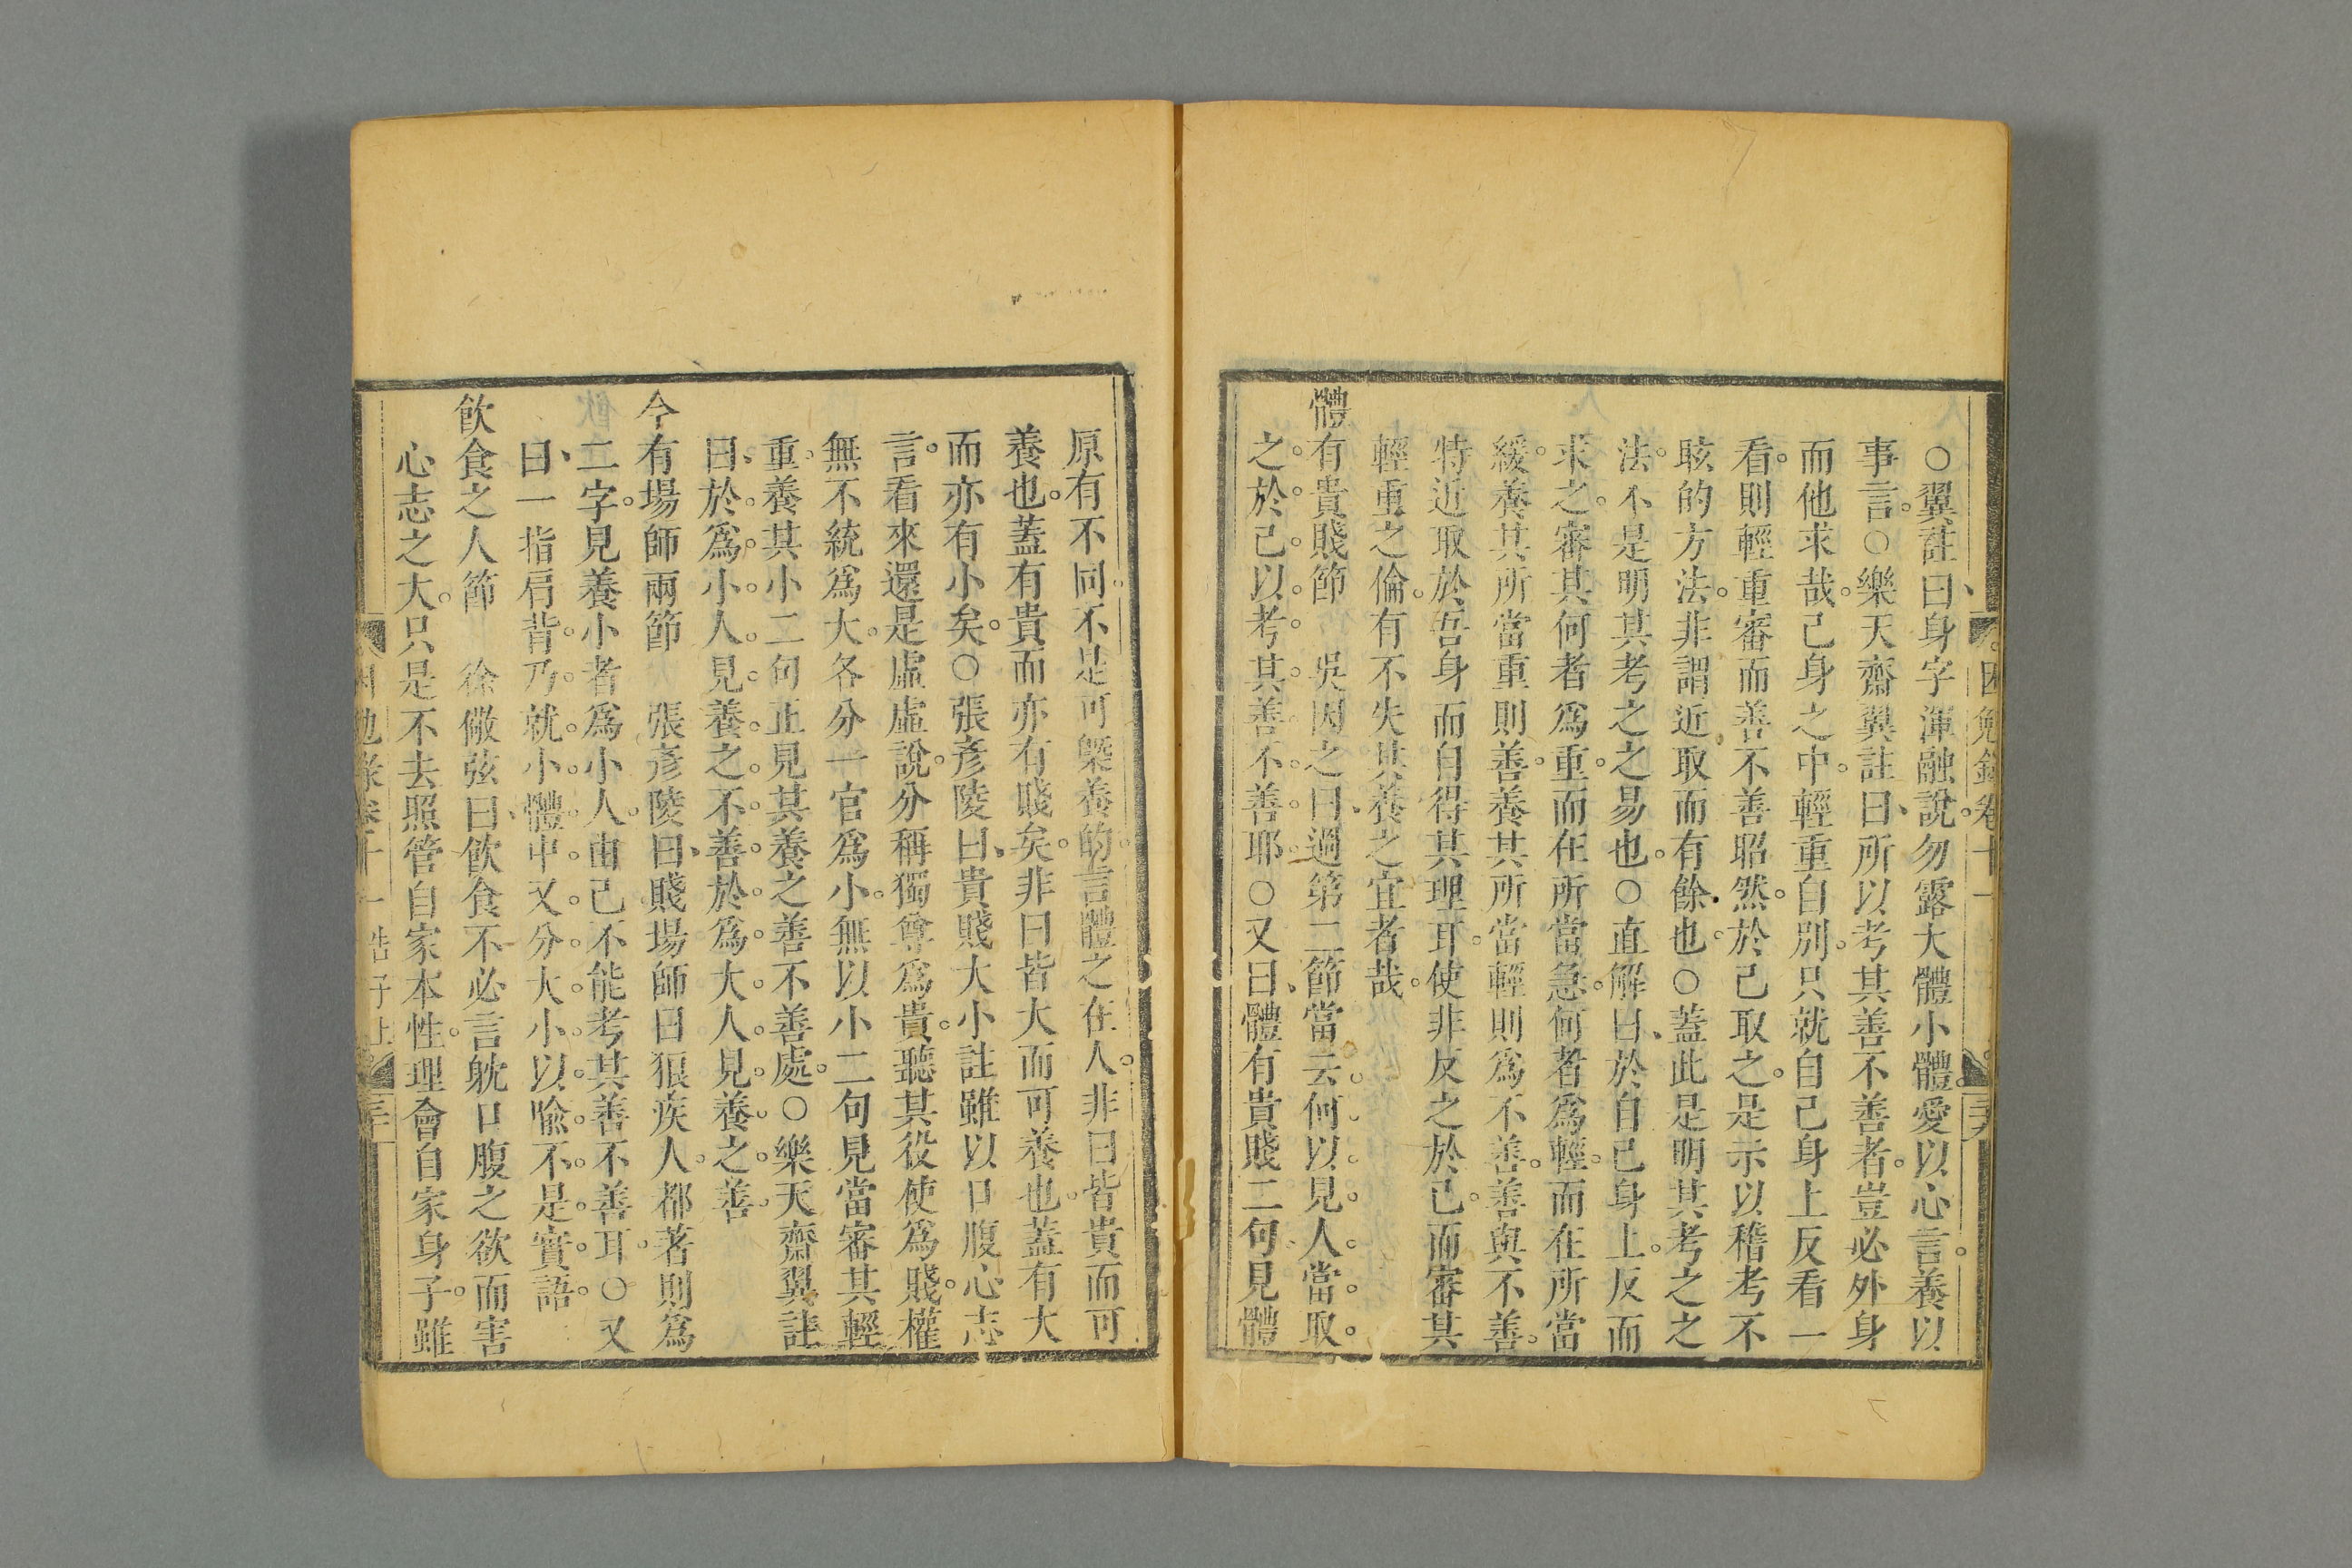 困勉錄卷十一
○翼註曰身字渾融說勿露大體小體愛以心言養以
事言○樂天齋翼註曰所以考其善不善者豈必外身
而他求哉己身之中輕重自別只就自己身上反看一
看則輕重審而善不善昭然於己取之是示以稽考不
眩的方法非謂近取而有餘也○蓋此是明其考之之
法不是明其考之之易也○直解曰於自己身上反而
求之審其何者為重而在所當急何者為輕而在所當
緩養其所當重則善養其所當輕則為不善善與不善
特近取於吾身而自得其理耳使非反之於己而審其
輕重之倫有不失其養之宜者哉
體有貴賤節　吳因之曰過第二節當云何以見人當取
之於己以考其善不善耶○又曰體有貴賤二句見體
原有不同不是可槩養的言體之在人非曰皆貴而可
養也蓋有貴而亦有賤矣非曰皆大而可養也蓋有大
而亦有小矣○張彥陵曰貴賤大小註雖以口腹心志
言看來還是虛虛說分稱獨尊為貴聽其役使為賤權
無不統為大各分一官為小無以小二句見當審其輕
重養其小二句止見其養之善不善處○樂天齋翼註
曰於為小人見養之不善於為大人見養之善
今有場師兩節　張彥陵曰賤場師曰狼疾人都著則為
二字見養小者為小人由己不能考其善不善耳○又
曰一指肩背乃就小體中又分大小以喻不是實語
飲食之人節　徐儆弦曰飲食不必言躭口腹之欲而害
心志之大只是不去照管自家本性理會自家身子雖
困勉錄卷十一 告子上